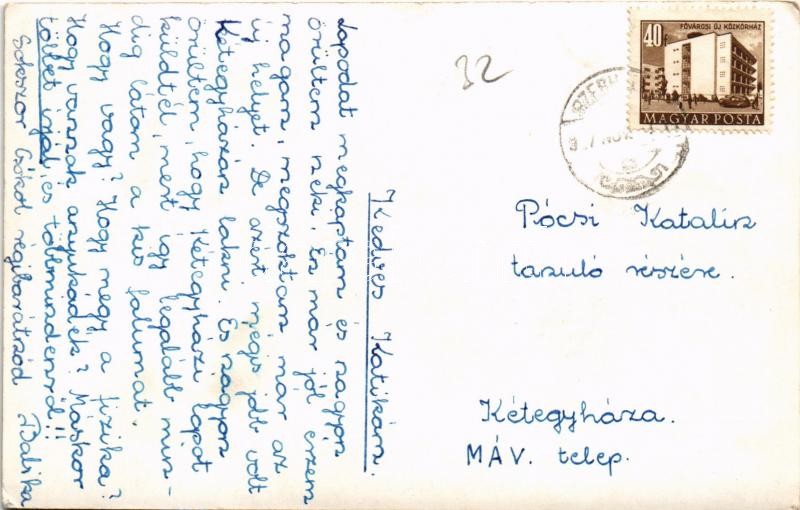 Kedves Katikám.
Lapodat megkaptam és nagyon
örültem neki. Én már jól érzem
magam, megszoktam már az
új helyet. De azért mégis jobb volt
Kétegyházán lakni. És nagyon
örültem, hogy Kétegyházi lapot
küldtél, mert így legalább min-
dig látom a kis falumat.
Hogy vagy? Hogy megy a fizika?
Hogy vannak anyukádék? Máskor
többet írjál, és többmindenről!!
Sokszor Csókol régibarátnőd Balika
32
40f
FŐVÁROSI ÚJ KÖZKÓRHÁZ
MAGYAR POSTA
Pócsi Katalin
tanuló részére.
Kétegyháza.
MÁV. telep.